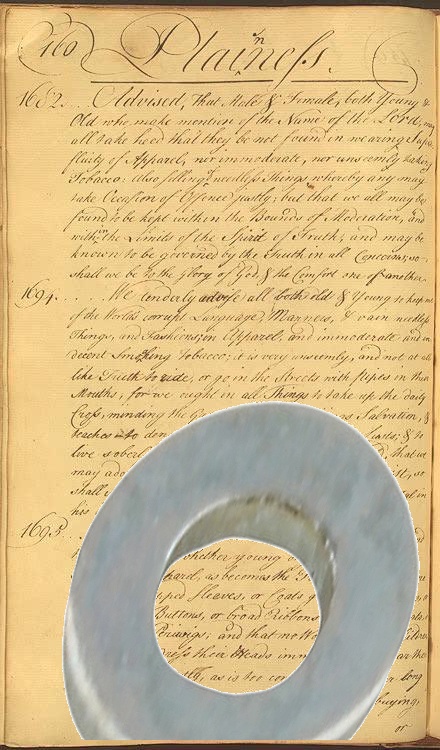 160
Plainness.
1682. . Advised, That Male & Female, both Young &
Old who make mention of the Name of the Lord, may
all take heed that they be not found in wearing Supe
fluity of Apparel, nor immoderate, nor unseemly taking
Tobacco: Also selling needless Things whereby any may
take Occasion of Offence justly; but that we all may be
found to be kept within the Bounds of Moderation, and
within the Limits of the Spirit of Truth, and may be
known to be governed by the Truth in all Concerns, so
shall we be to the Glory of God, & the Comfort one of another.
1694. . . . . We tenderly advise all both old & Young to keep out
of the World's corrupt Language, Manners, & vain needless
Things, and Fashions, in Apparel, and immoderate and in
decent Smoking Tobacco; it is very unseemly, and not at all
like Truth to ride, or go in the Streets with pipes in their
Mouths, for we ought in all Things to take up the daily
Cross, minding the Salvation, &
teaches to den & to
live sober that we
may ado ist, so
shall
his
1695
whether young
hard, as becomes the
Sleaves, or Coats
Buttons, or broad Ribbons
Periwigs; and that no
Dress their Heads imm
as is too com long
buying,
or